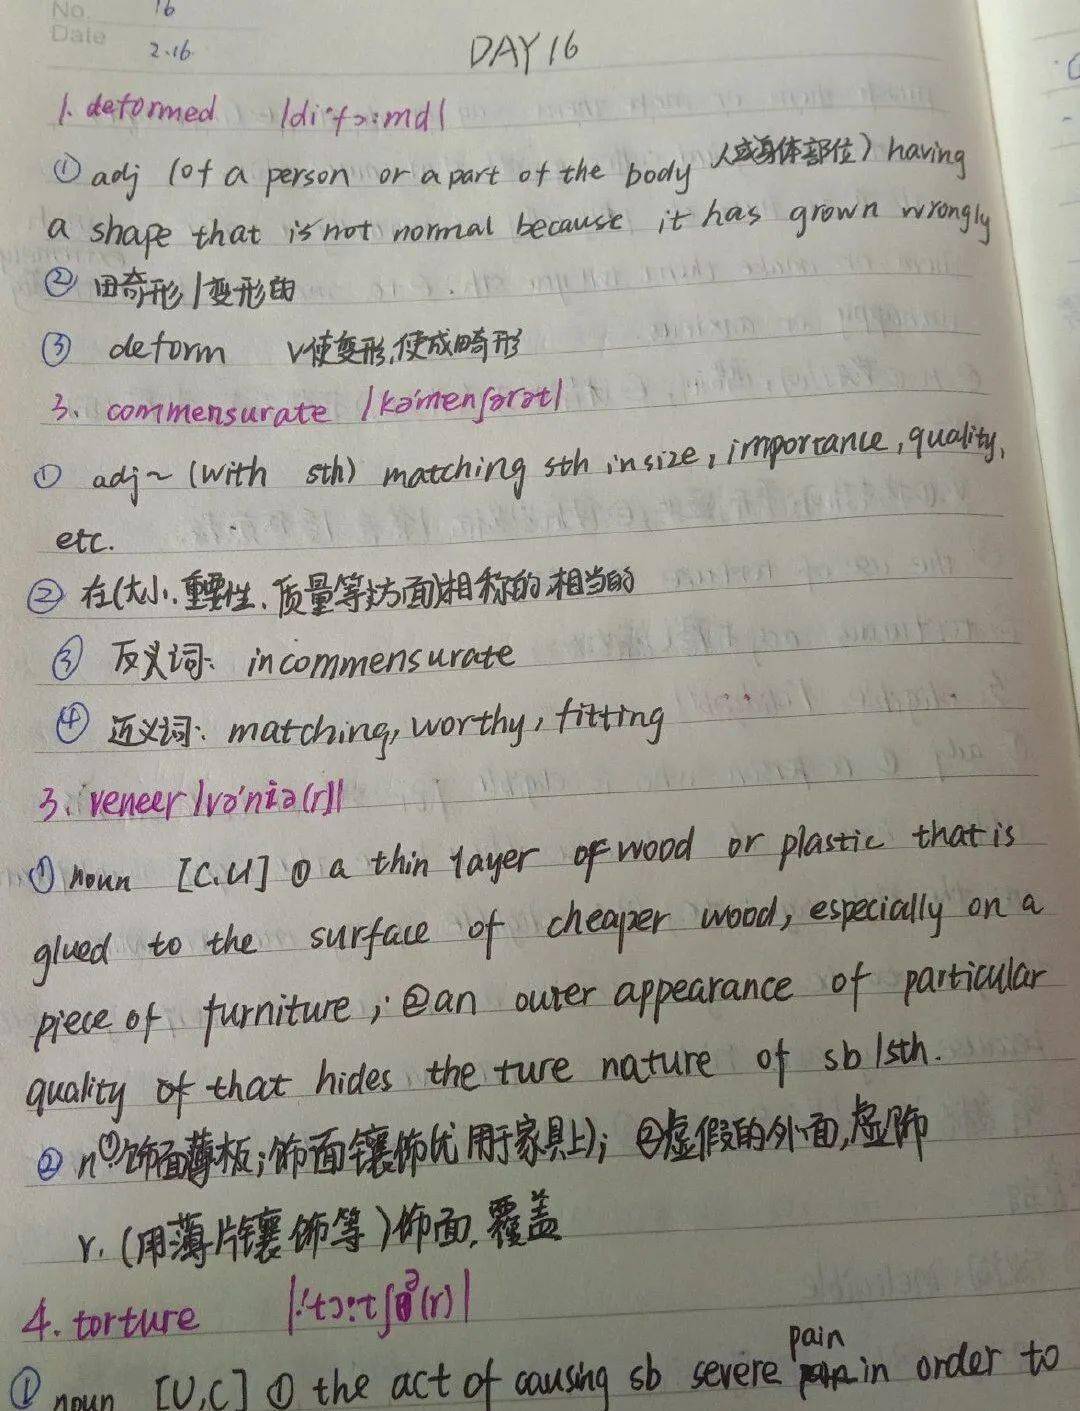 No. 16
Date 2.16
DAY 16
1. deformed /dɪˈfɔːmd/
① adj (of a person or a part of the body 人或身体部位) having
a shape that is not normal because it has grown wrongly
② 畸形/变形的
③ deform v使变形,使成畸形
3. commensurate /kəˈmenʃərət/
① adj~ (with sth) matching sth in size, importance, quality,
etc.
② 在(大小、重要性、质量等方面)相称的,相当的
③ 反义词: incommensurate
④ 近义词: matching, worthy, fitting
3. veneer /vəˈnɪə(r)/
① noun [C,U] ① a thin layer of wood or plastic that is
glued to the surface of cheaper wood, especially on a
piece of furniture; ②an outer appearance of particular
quality of that hides the ture nature of sb/sth.
② n①饰面薄板;饰面镶饰(尤用于家具上); ②虚假的外面,虚饰
v. (用薄片镶饰等)饰面,覆盖
4. torture /ˈtɔːtʃə(r)/
① noun [U,C] ① the act of causing sb severe pain in order to